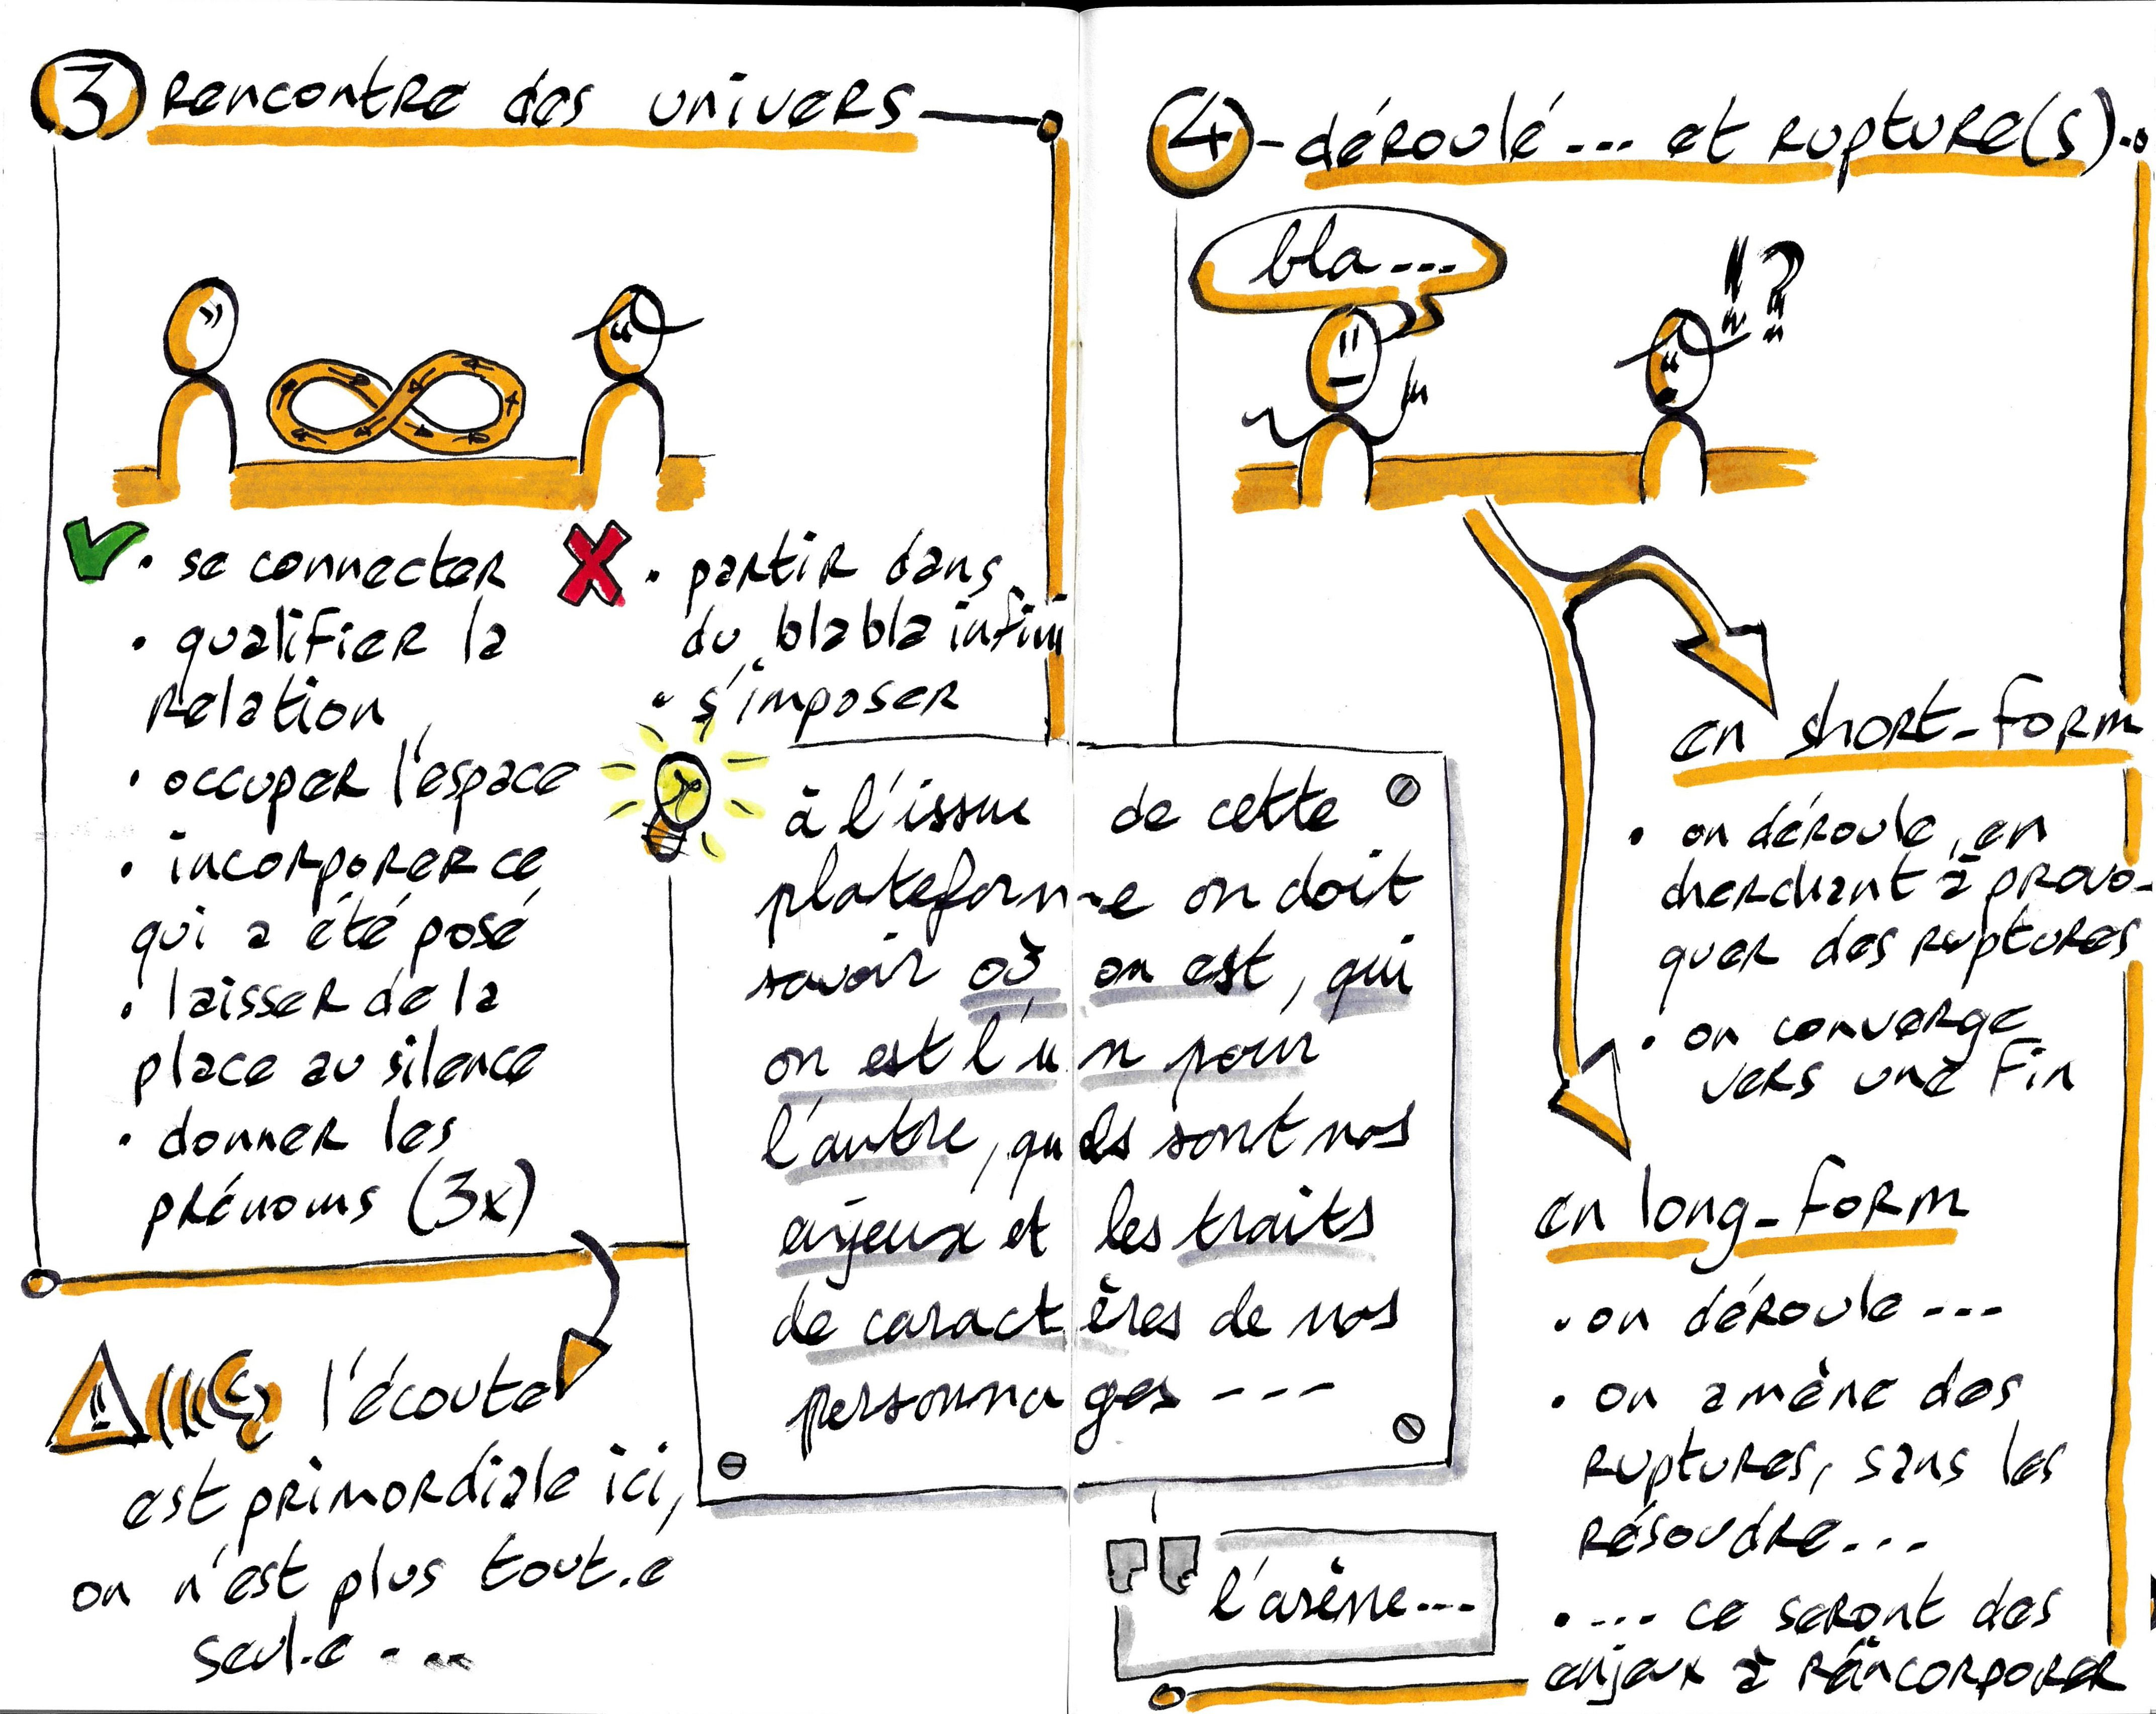 3 rencontre des univers
• se connecter
• qualifier la
relation
• occuper l'espace
• incorporer ce
qui a été posé
• laisser de la
place au silence
• donner les
prénoms (3x)
• partir dans
du blabla infini
• s'imposer
à l'issue de cette
plateforme on doit
savoir où on est, qui
on est l'un pour
l'autre, quels sont nos
enjeux et les traits
de caractères de nos
personnages ---
! l'écoute
est primordiale ici,
on n'est plus tout.e
seul.e ...
4 - déroulé... et rupture(s)..
bla...
!?
en short-form
• on déroule, en
cherchant à provo-
quer des ruptures
• on converge
vers une fin
en long-form
• on déroule ---
• on amène des
ruptures, sans les
résoudre...
• ... ce seront des
enjeux à réincorporer
l'arène...